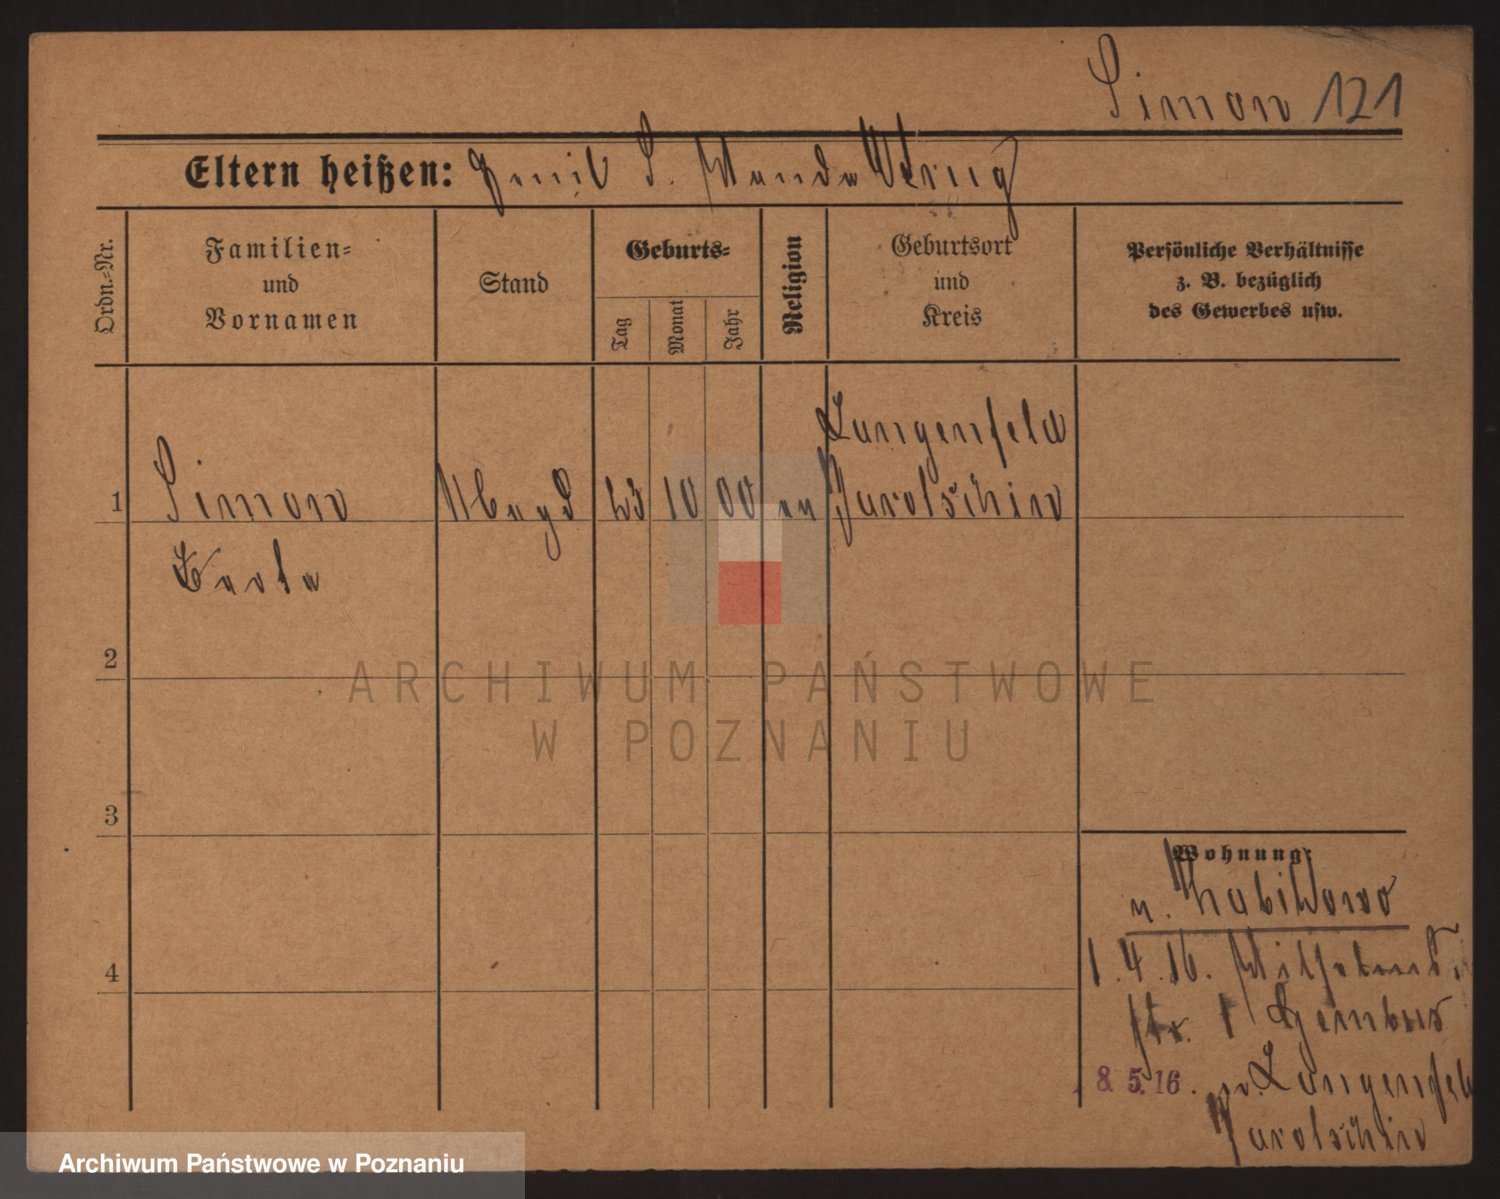 Simon 121
Eltern heißen: Emil S. Wanda Werng
Ordn.-Nr.
Familien-
und
Vornamen
Stand
Geburts-
Tag
Monat
Jahr
Religion
Geburtsort
und
Kreis
Persönliche Verhältnisse
z. B. bezüglich
des Gewerbes usw.
Langenfeld
1 Simon Magd 23 10 00 ev Jarotschin
2
3
4
Wohnung:
n.
1.4.16. Wilhelms-
str. 1
8. 5. 16. n. Langenfeld
Jarotschin
ARCHIWUM PAŃSTWOWE
W POZNANIU
Archiwum Państwowe w Poznaniu